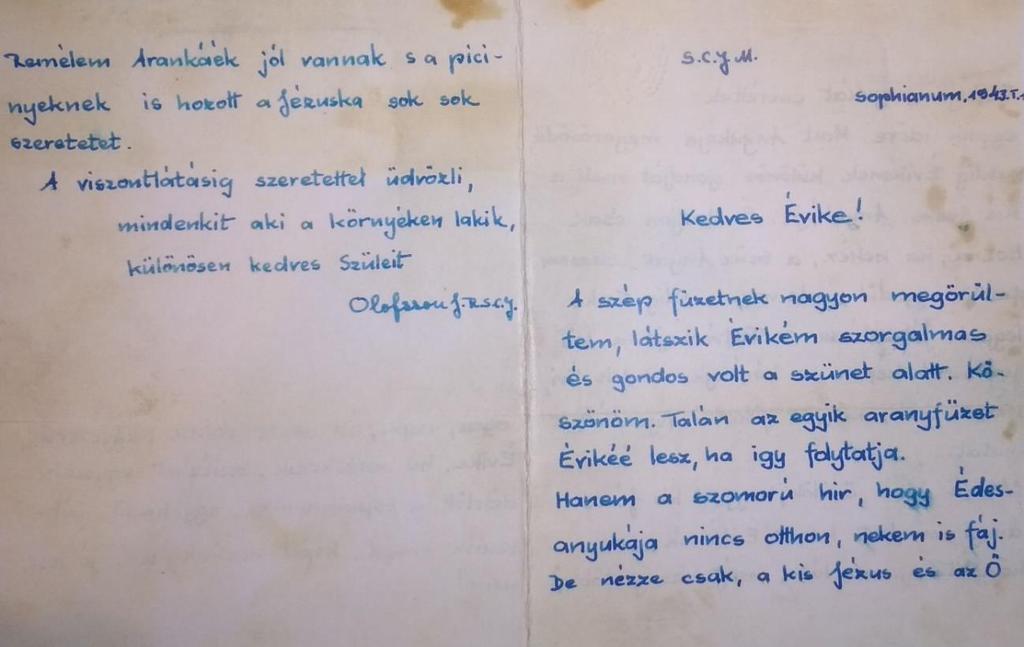 Remélem Arankáék jól vannak s a pici-
nyeknek is hozott a Jézuska sok sok
szeretetet.
A viszontlátásig szeretettel üdvözli,
mindenkit aki a környéken lakik,
különösen kedves Szüleit
Olofsson J. R.S.C.J.
S.C.J.M.
Sophianum, 1943.I.
Kedves Évike!
A szép füzetnek nagyon megörül-
tem, látszik Évikém szorgalmas
és gondos volt a szünet alatt. Kö-
szönöm. Talán az egyik aranyfüzet
Évikéé lesz, ha igy folytatja.
Hanem a szomorú hir, hogy Édes-
anyukája nincs otthon, nekem is fáj.
De nézze csak, a kis Jézus és az Ő